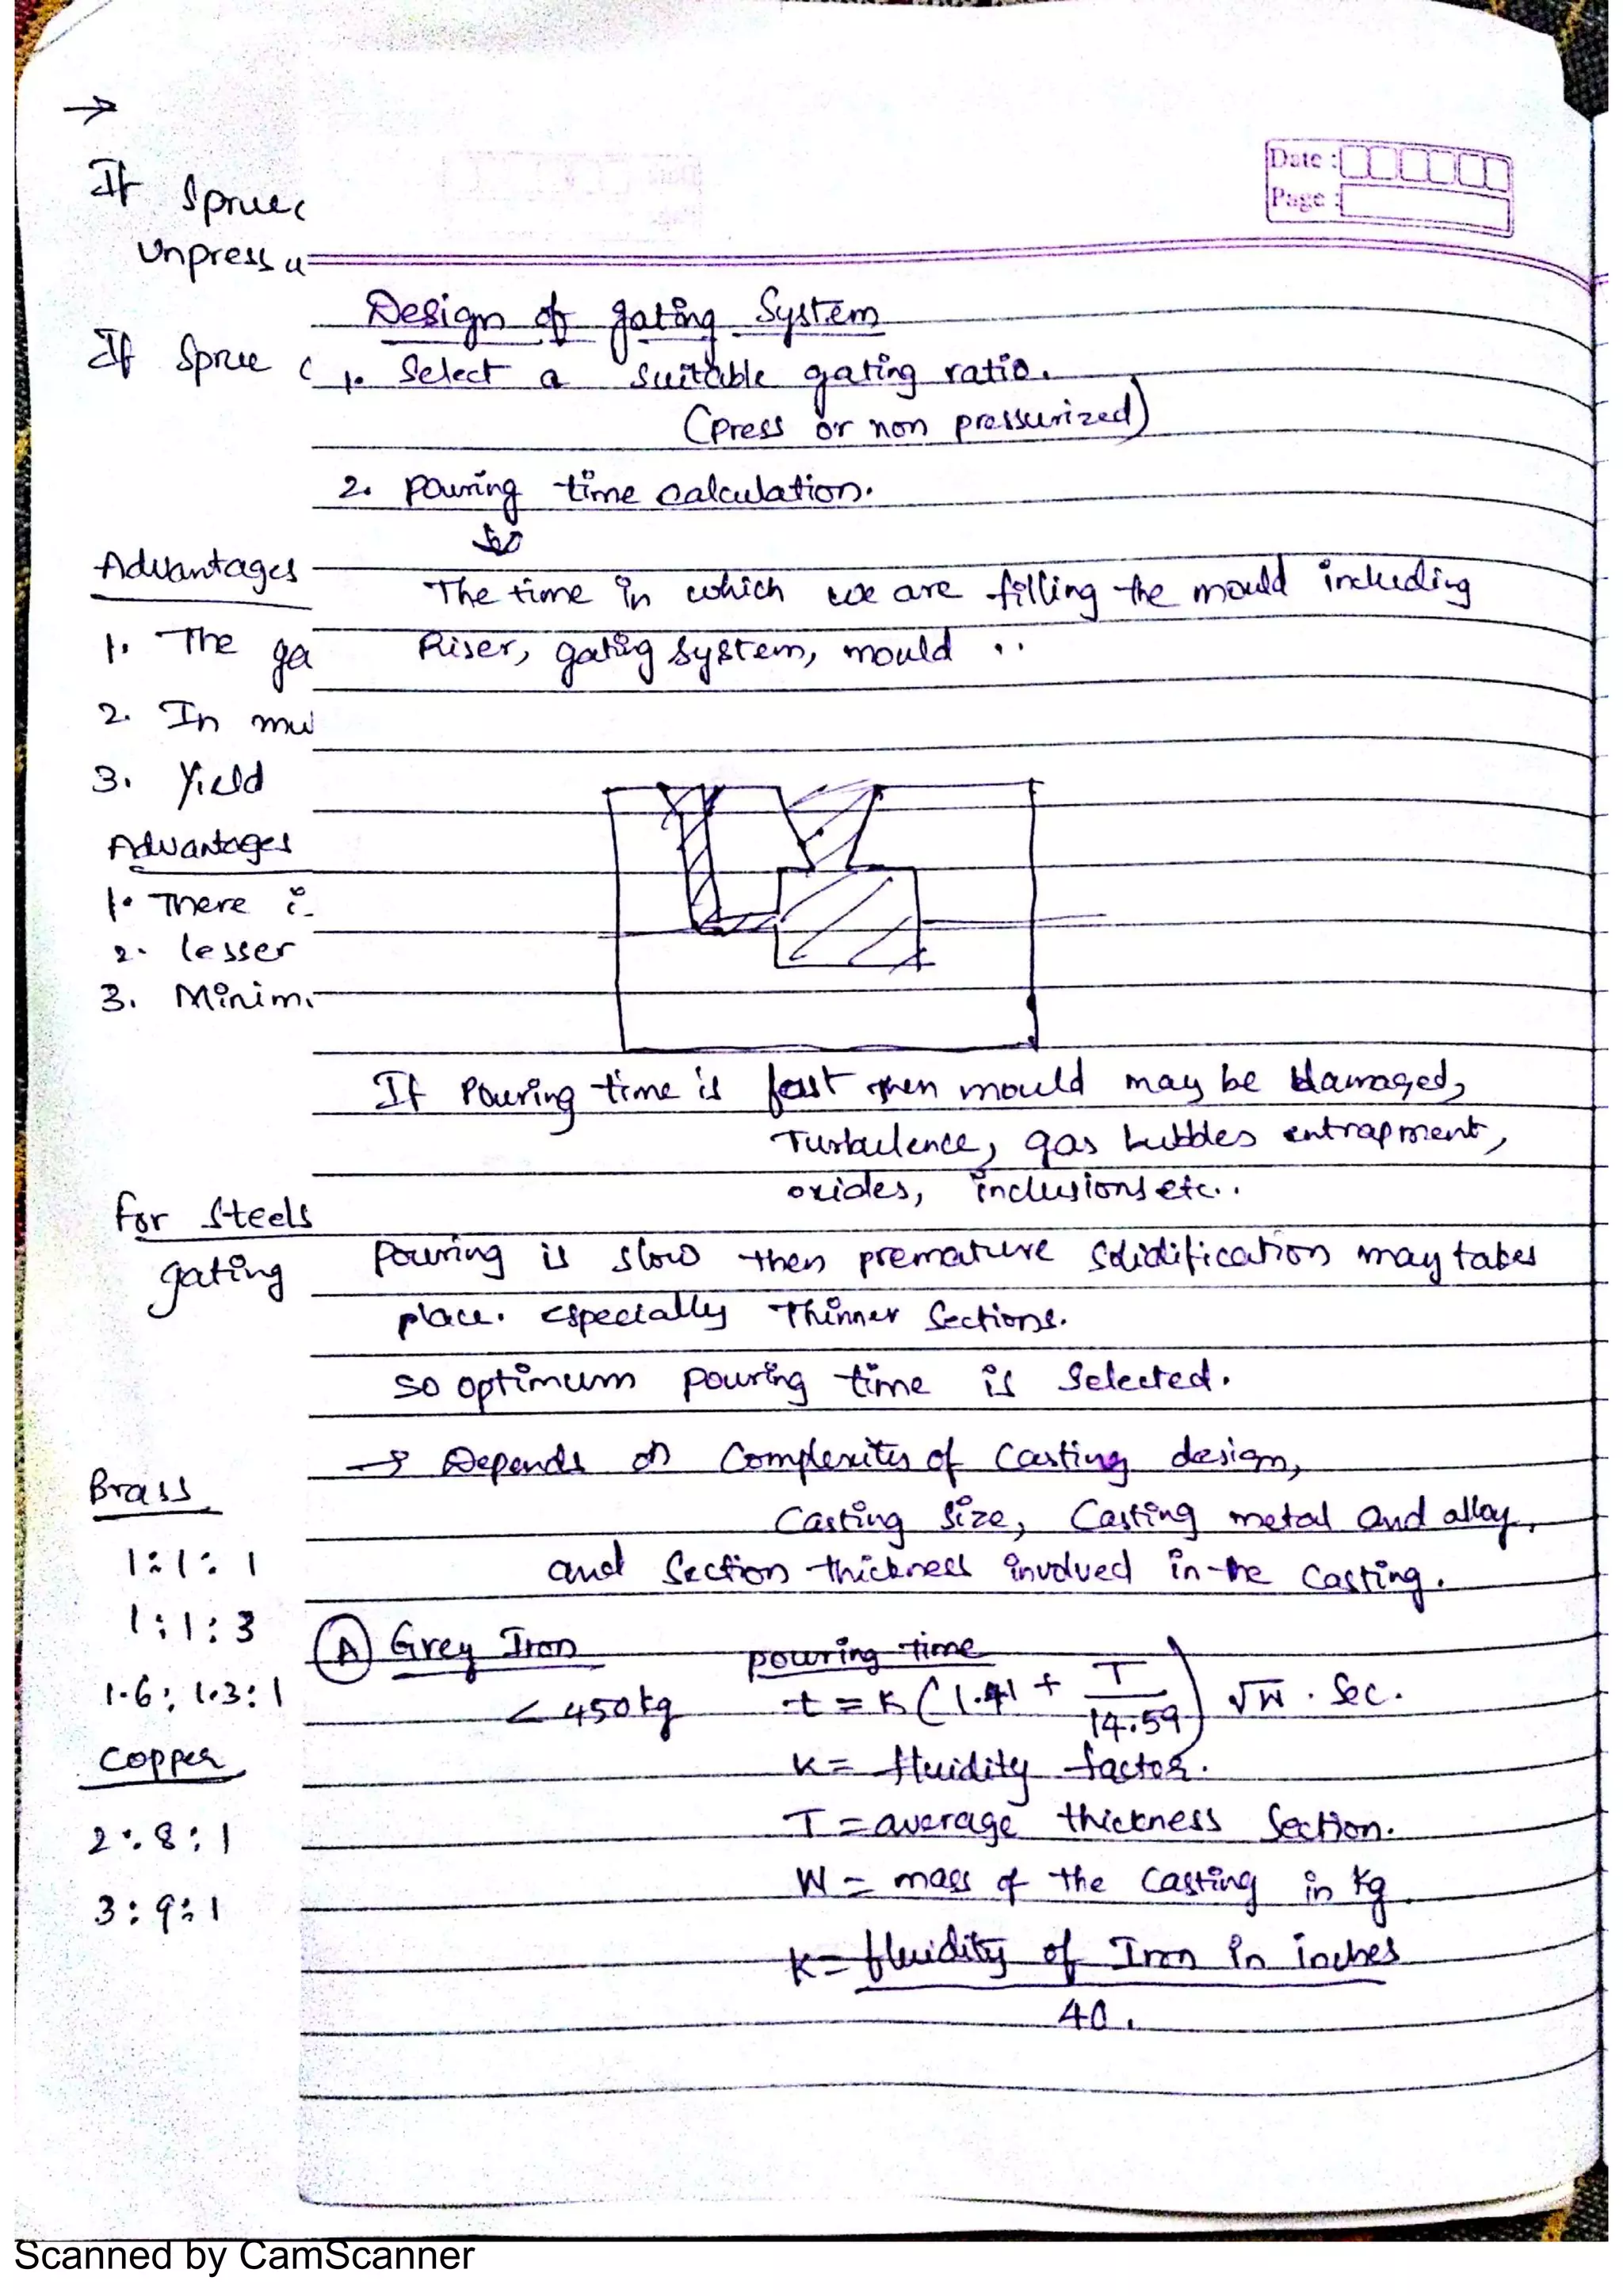 →
If Spruec
Unpressu
If Spree c
Advantages
1. The ga
2. In mul
3. Yield
Advantages
1. There i
2. lesser
3. Minim
For Steels
gating
Brass
1:1:1
1:1:3
1.6:1.3:1
Copper
2:8:1
3:9:1
Date :
Page :
Design of gating System
1. Select a suitable gating ratio.
(press or non pressurized)
2. pouring time calculation.
The time in which we are filling the mould including
Riser, gating system, mould ..
If Pouring time is fast then mould may be damaged,
Turbulence, gas bubbles entrapment,
oxides, inclusions etc..
Pouring is slow then premature solidification may takes
place. especially Thinner Sections.
so optimum pouring time is selected.
→ Depends on Complexity of Casting design,
Casting size, Casting metal and alloy,
and Section thickness involved in the Casting.
(A) Grey Iron pouring time
< 450kg t = K (1.41 + T/14.59) √W . Sec.
K = fluidity factor.
T = average thickness Section.
W = mass of the Casting in kg.
K = fluidity of Iron in inches
40.
Scanned by CamScanner